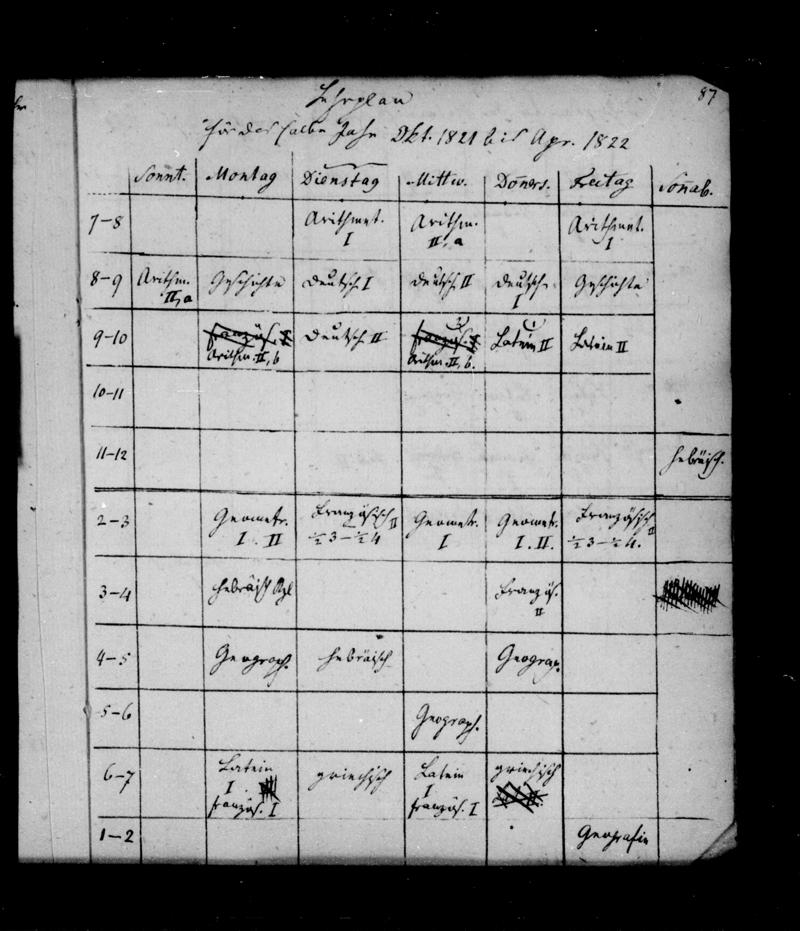 87
Lehrplan
für das halbe Jahr Okt. 1821 bis Apr. 1822
Sonnt. Montag Dienstag Mittw. Donners. Freitag Sonnab.
7-8 Arithmet. I Arithm. II, a Arithmet. I
8-9 Arithm. II, a Geschichte Deutsch I Deutsch II Deutsch I Geschichte
9-10 Französ. II Arithm. II, b Deutsch II Französ. II Arithm. II, b. Latein II Latein II
10-11
11-12 Hebräisch.
2-3 Geometr. I. II Französisch II ½3-½4 Geometr. I Geometr. I. II. Französisch II ½3-½4.
3-4 Hebräisch Französ. II
4-5 Geograph. Hebräisch Geograp.
5-6 Geograph.
6-7 Latein I. Französ. I Griechisch Latein I Französ. I Griechisch
1-2 Geografie